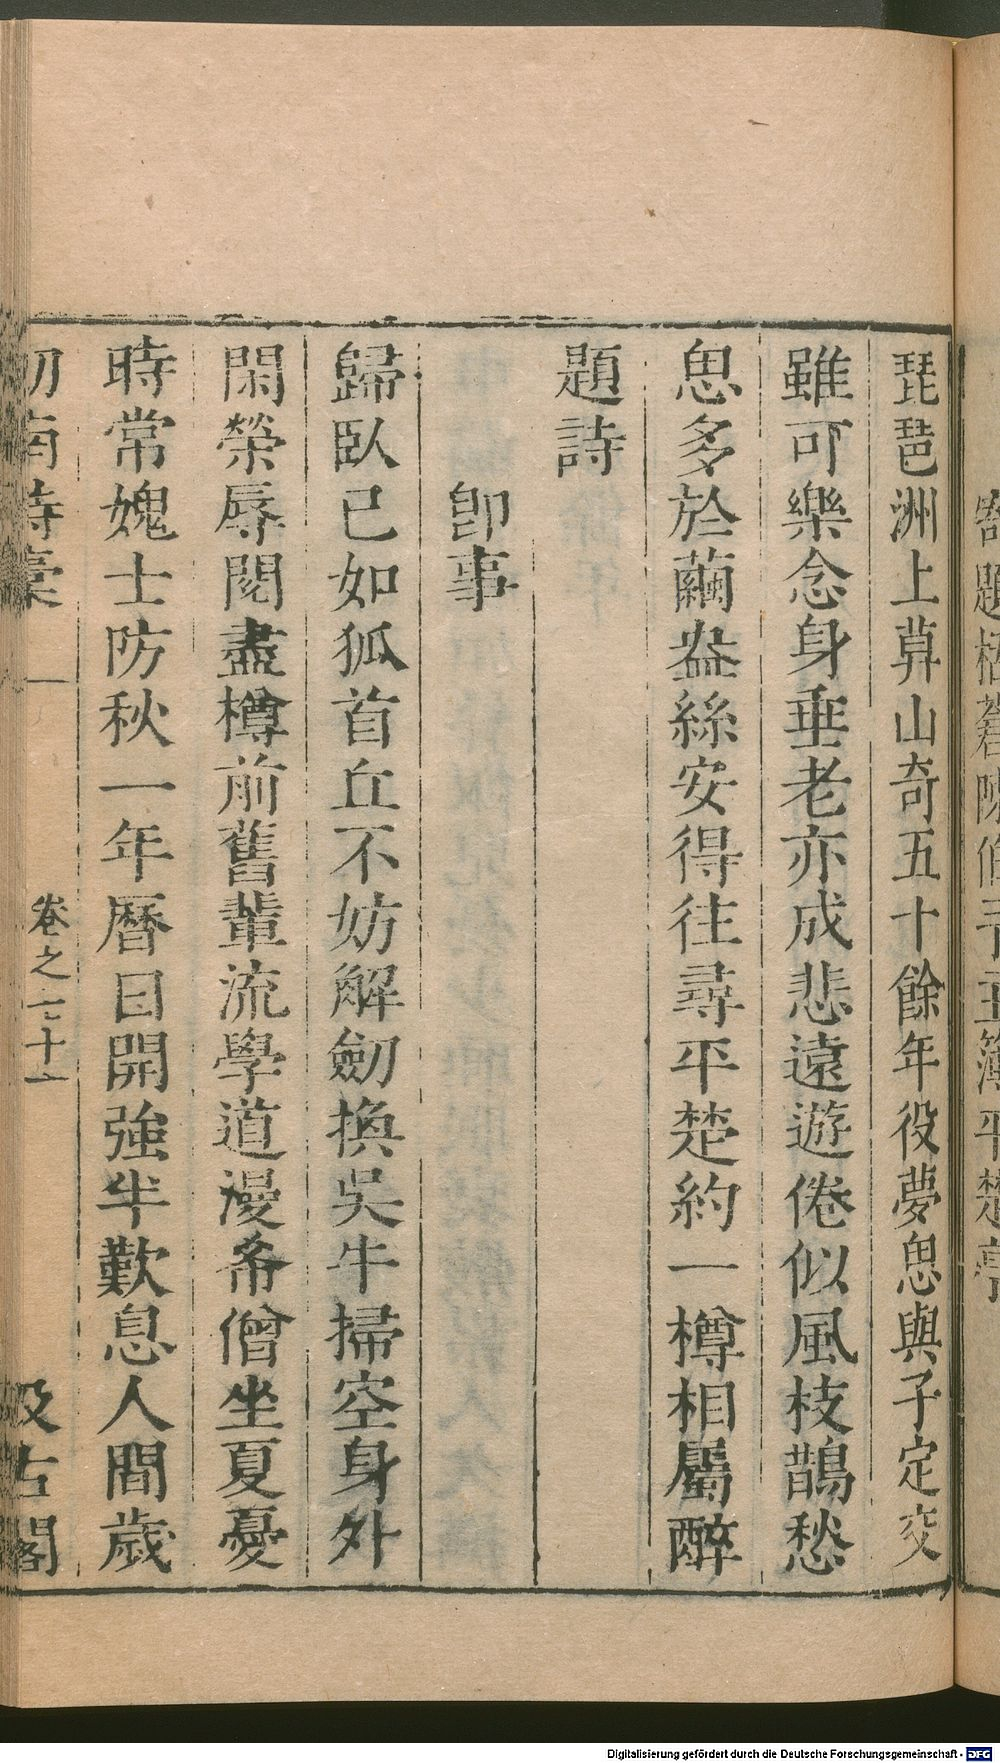 琵琶洲上莫山奇五十餘年役夢思與子定交
雖可樂念身垂老亦成悲遠遊倦似風枝鵲愁
思多於繭盎絲安得往尋平楚約一樽相屬醉
題詩
卽事
歸臥已如狐首丘不妨解劒換吳牛掃空身外
閑榮辱閱盡樽前舊輩流學道漫希僧坐夏憂
時常媿士防秋一年曆日開強半歎息人間歲
卷之七十一
汲古閣
Digitalisierung gefördert durch die Deutsche Forschungsgemeinschaft - DFG